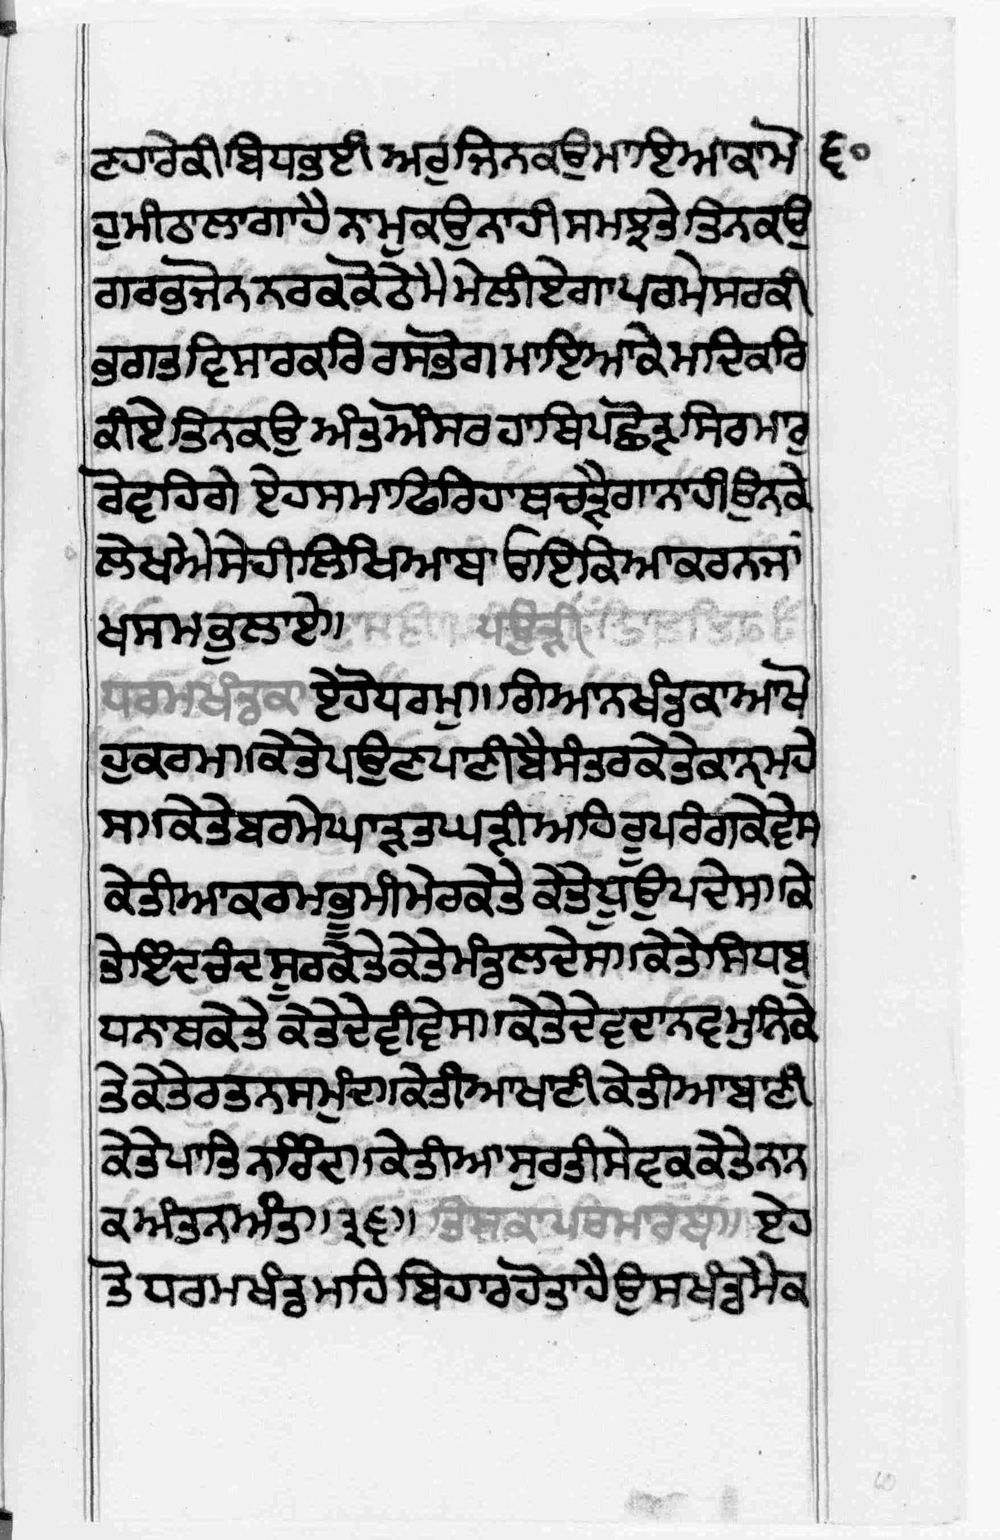 ਣਹਾਰੇਕੀਬਿਧਭੁਈ ਅਰੁਜਿਨਕਉਮਾਇਆਕਾਮੋ ੬੦
ਹੁਮੀਠਾਲਾਗਾਹੈ ਨਾਮੁਕਉਨਾਹੀਸਮਝਤੇ ਤਿਨਕਉ
ਗਰਭਜੋਨਨਰਕਕੋਠੇਮੈਮੇਲੀਏਗਾਪਰਮੇਸਰਕੀ
ਭਗਤਵਿਸਾਰਕਰਿ ਰਸਭੋਗਮਾਇਆਕੇਮਦਿਕਰਿ
ਕੀਏ ਤਿਨਕਉ ਅੰਤਔਸਰਹਾਥਪਛੋੜਸਿਰਮਾਰੁ
ਰੋਵਹਿਗੇ ਏਹਸਮਾਫਿਰਿਹਾਥਚੜੈਗਾਨਾਹੀਉਨਕੇ
ਲੇਖਐਸੇਹੀਲਿਖਿਆਥਾ ਓਇਕਿਆਕਰਨਜਾਂ
ਖਸਮਭੁਲਾਏ॥ ਪਉੜੀ
ਧਰਮਖੰਡਕਾ ਏਹੋਧਰਮੁ॥ਗਿਆਨਖੰਡਕਾਆਖੋ
ਹੁਕਰਮ॥ਕੇਤੇਪਉਣਪਾਣੀਬੈਸੰਤਰਕੇਤੇਕਾਨਮਹੇ
ਸ॥ਕੇਤੇਬਰਮੇਘਾੜਤਘੜੀਅਹਿਰੂਪਰੰਗਕੇਵੇਸ
ਕੇਤੀਆਕਰਮਭੂਮੀਮੇਰਕੇਤੇ ਕੇਤੇਧੂਉਪਦੇਸ॥ਕੇ
ਤੇਇੰਦਚੰਦਸੂਰਕੇਤੇਕੇਤੇਮੰਡਲਦੇਸ॥ਕੇਤੇਸਿਧਬੁ
ਧਨਾਥਕੇਤੇ ਕੇਤੇਦੇਵੀਵੇਸ॥ਕੇਤੇਦੇਵਦਾਨਵਮੁਨਿਕੇ
ਤੇਕੇਤੇਰਤਨਸਮੁੰਦ॥ਕੇਤੀਆਖਾਣੀਕੇਤੀਆਬਾਣੀ
ਕੇਤੇਪਾਤਿਨਰਿੰਦ॥ਕੇਤੀਆਸੁਰਤੀਸੇਵਕਕੇਤੇਨਾਨ
ਕਅੰਤਨਅੰਤ॥੩੬॥ ਤਿਸਕਾਪਰਮਾਰਥ॥ ਏਹ
ਤੋ ਧਰਮਖੰਡਮਹਿਬਿਹਾਰਹੋਤਾਹੈਉਸਖੰਡਮੈਕ